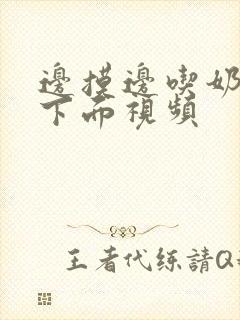 邊摸邊喫奶
下面視頻
王者代练請Q